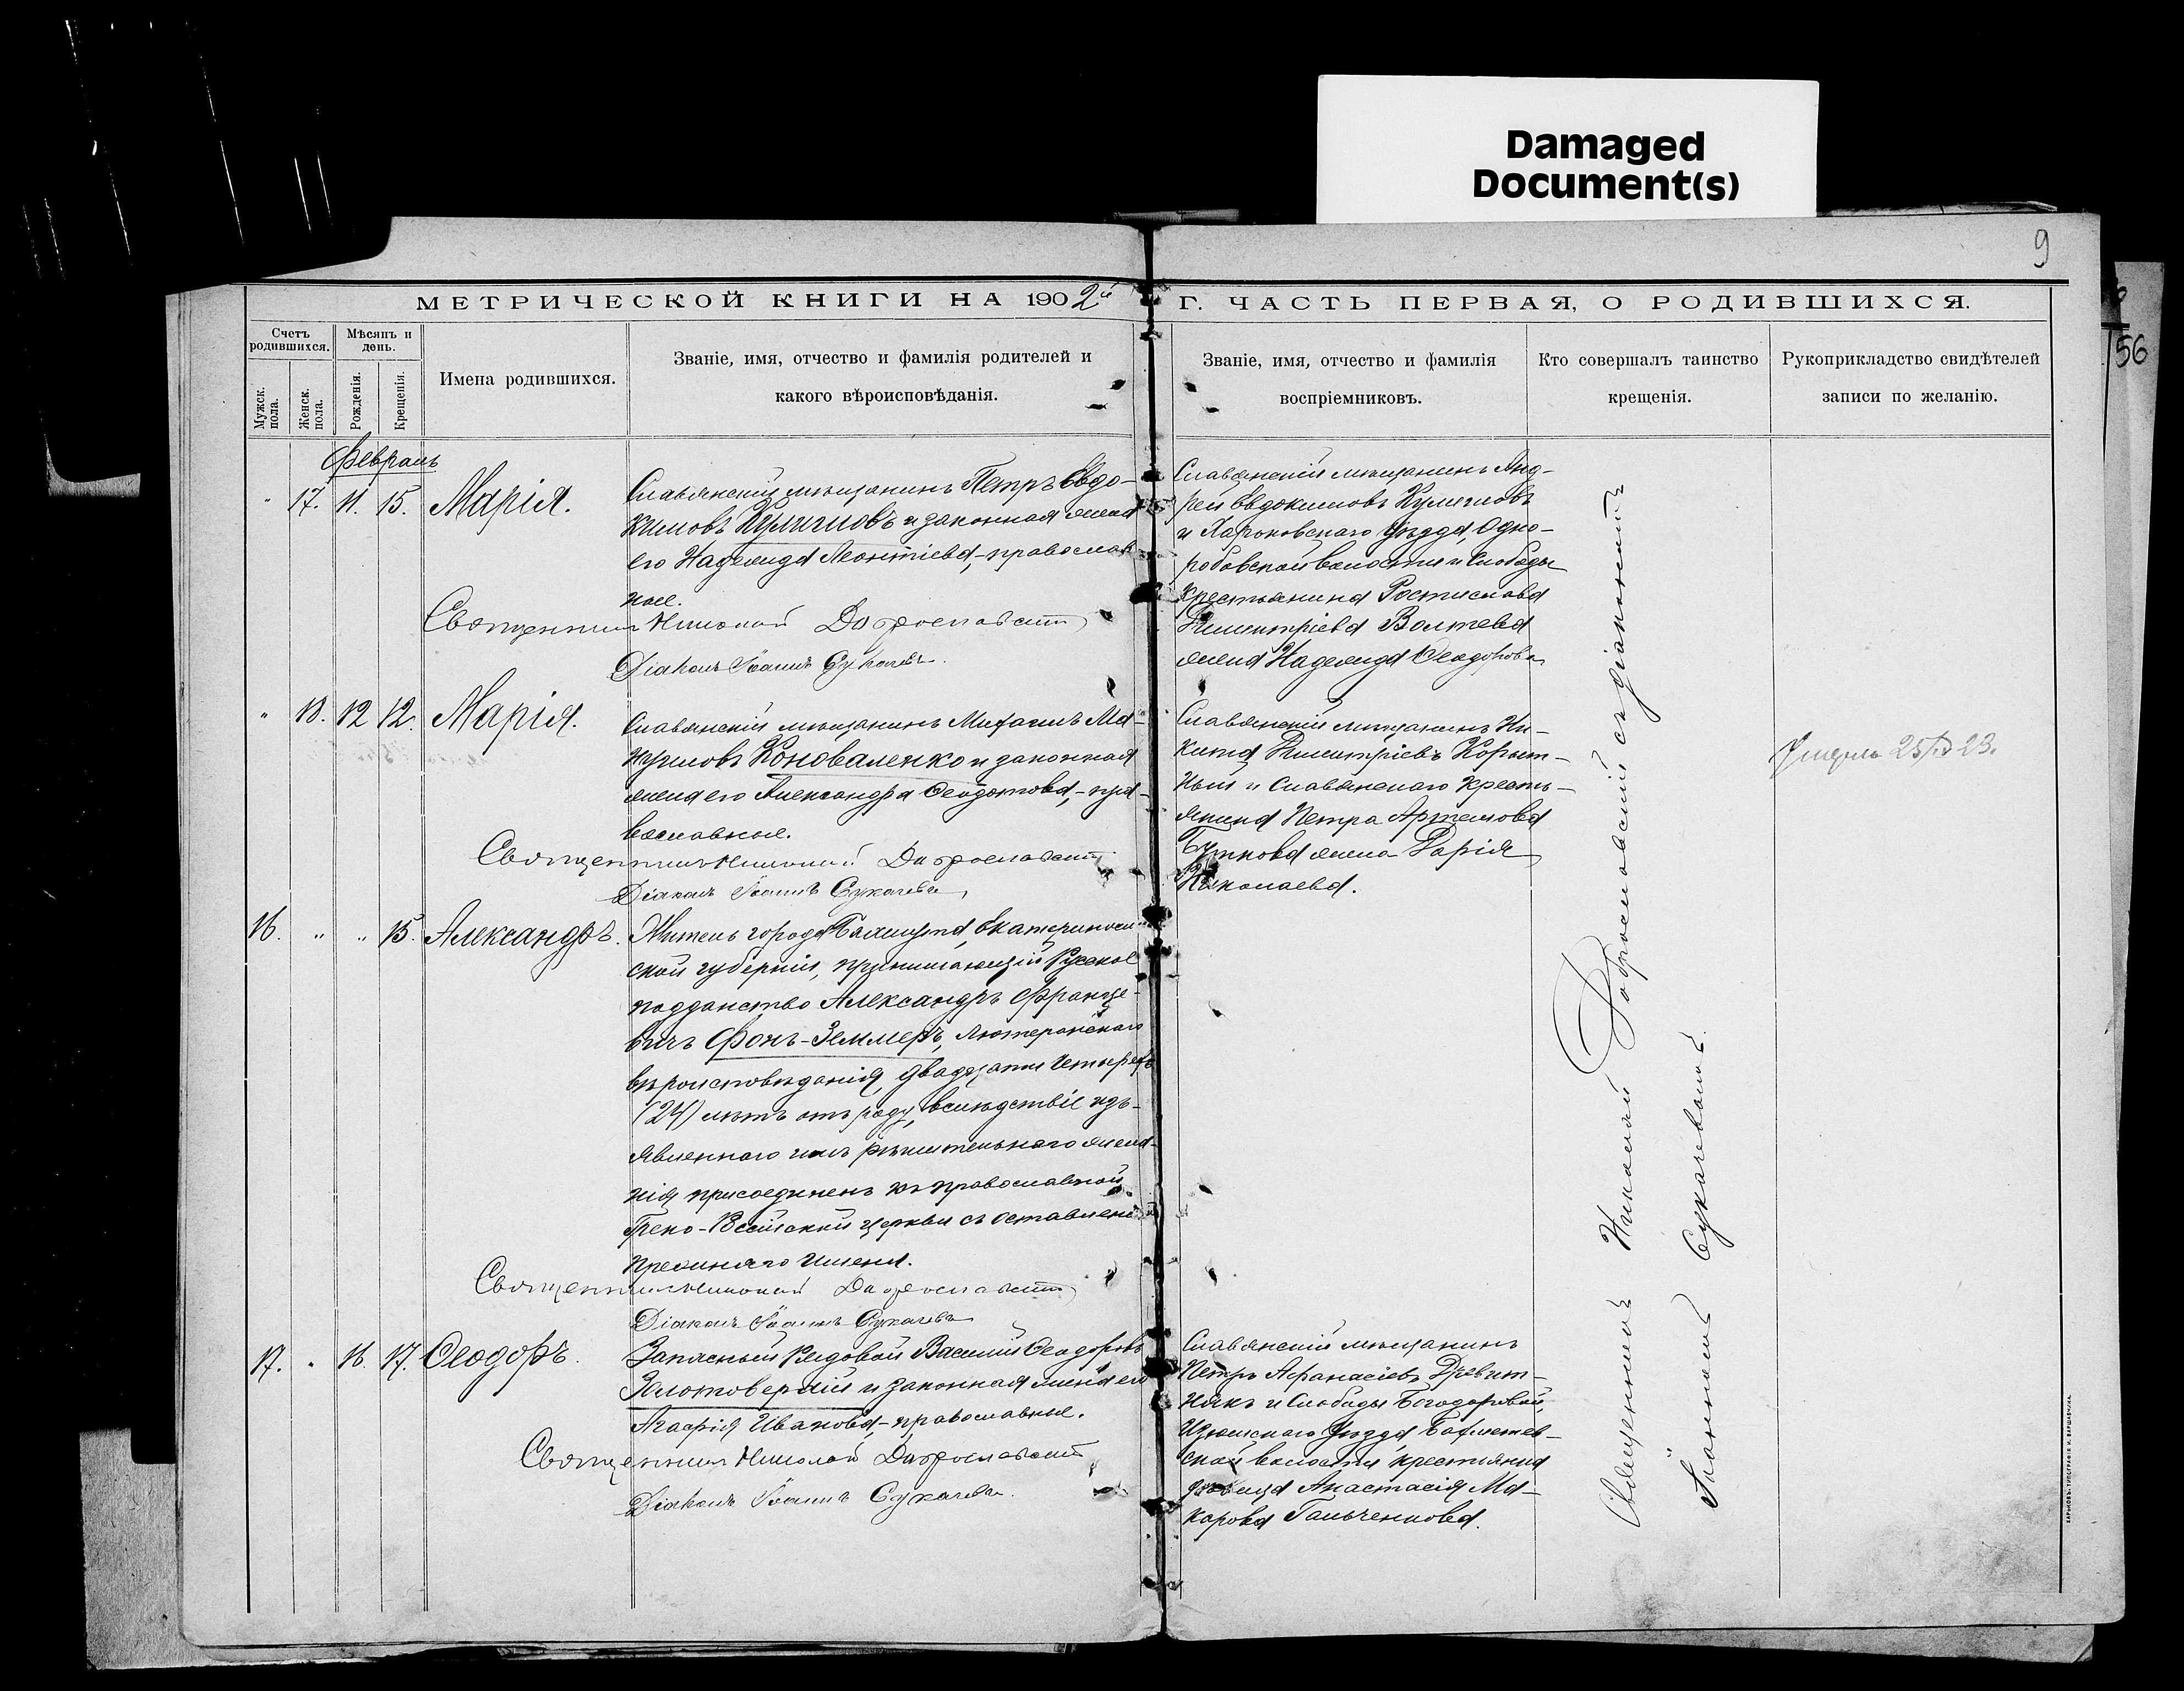 Damaged
Document(s)
9
56
МЕТРИЧЕСКОЙ КНИГИ НА 1902й Г. ЧАСТЬ ПЕРВАЯ, О РОДИВШИХСЯ.
Счетъ родившихся.
Мужск. пола.
Женск. пола.
Мѣсяцъ и день.
Рожденія.
Крещенія.
Имена родившихся.
Званіе, имя, отчество и фамилія родителей и
какого вѣроисповѣданія.
Званіе, имя, отчество и фамилія
воспріемниковъ.
Кто совершалъ таинство
крещенія.
Рукоприкладство свидѣтелей
записи по желанію.
Февраль
" 17. 11. 15. Марія.
Славянскій мѣщанинъ Петръ Евдо-
кимовъ Кулигловъ и законная жена
его Надежда Леонтіева,-православ
ные.
Священникъ Николай Доброславскій
Діаконъ Іоаннъ Сукачевъ.
Славянскій мѣщанинъ Анд-
рей Евдокимовъ
и Харьковскаго уѣзда, Одно-
робовской волости и слободы
крестьянина Ростислава
Димитріева
жена Надежда Ѳеодорова
" 18. 12 12. Марія.
Славянскій мѣщанинъ Михаилъ Ма-
нуиловъ Коноваленко и законная
жена его Александра Ѳеодотова,-пра-
вославные.
Священникъ Николай Доброславскій
Діаконъ Іоаннъ Сукачевъ
Славянскій мѣщанинъ Ни-
кита Димитріевъ Корыт-
ный и Славянскаго кресть-
янина Петра Артемова
Буткова жена Дарія
Николаева.
Умерла 25/IX 23.
16. " " 15. Александръ.
Житель города Бахмута, Екатериносл
ской губерніи, принимающій Русское
подданство Александръ Франце-
вичъ Фонъ-Земмеръ, лютеранскаго
вѣроисповѣданія, двадцати четырехъ
(24) лѣтъ отъ роду, вслѣдствіе изъ-
явленнаго имъ рѣшительнаго жела-
нія присоединенъ къ православной
Греко-Россійской церкви съ оставлені
прежняго имени.
Священникъ Николай Доброславскій
Діаконъ Іоаннъ Сукачевъ
17. " 16. 17. Ѳеодоръ.
Запасный рядовой Василій Ѳеодоровъ
Золотоверхій и законная жена его
Агафія Иванова,-православные.
Священникъ Николай Доброславскій
Діаконъ Іоаннъ Сукачевъ.
Славянскій мѣщанинъ
Петръ Афанасіевъ Древит-
някъ и слободы Богодаровой,
Изюмскаго уѣзда, Бахметев-
ской волости крестьянка
дѣвица Анастасія Ма-
карова Гальченкова.
Священникъ Николай Доброславскій съ діакономъ
Іоанномъ Сукачевымъ.
ХАРЬКОВЪ. ТИПОГРАФІЯ И. ВАРШАВЧИКА.